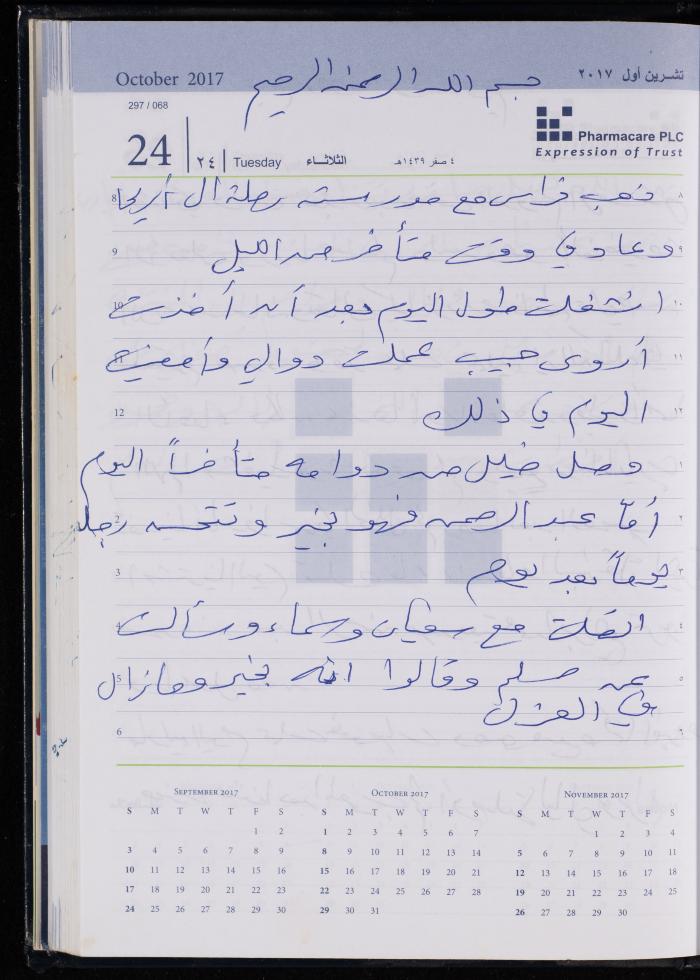 October 2017
تشرين أول ٢٠١٧
بسم الله الرحمن الرحيم
297 / 068
24
٢٤
Tuesday
الثلاثاء
٤ صفر ١٤٣٩هـ
Pharmacare PLC
Expression of Trust
8 ذهب فراس مع مدرسته رحلة ال أريحا ٨
9 وعاد في وقت متأخر من الليل ٩
10 انشغلت طول اليوم بعد أن أخذت ١٠
11 أروى حبيب عملت دوالي وأمضيت ١١
12 اليوم في ذلك ١٢
وصل خليل من دوامه متأخراً اليوم ١
2 أمّا عبد الرحمن فهو بخير وتتحسن رجله ٢
3 يوماً بعد يوم ٣
4 اتصلت مع سفيان وسماء وسألت ٤
5 عن مسلم وقالوا انه بخير ومازال ٥
في العزل
6 ٦
SEPTEMBER 2017
S M T W T F S
1 2
3 4 5 6 7 8 9
10 11 12 13 14 15 16
17 18 19 20 21 22 23
24 25 26 27 28 29 30
OCTOBER 2017
S M T W T F S
1 2 3 4 5 6 7
8 9 10 11 12 13 14
15 16 17 18 19 20 21
22 23 24 25 26 27 28
29 30 31
NOVEMBER 2017
S M T W T F S
1 2 3 4
5 6 7 8 9 10 11
12 13 14 15 16 17 18
19 20 21 22 23 24 25
26 27 28 29 30